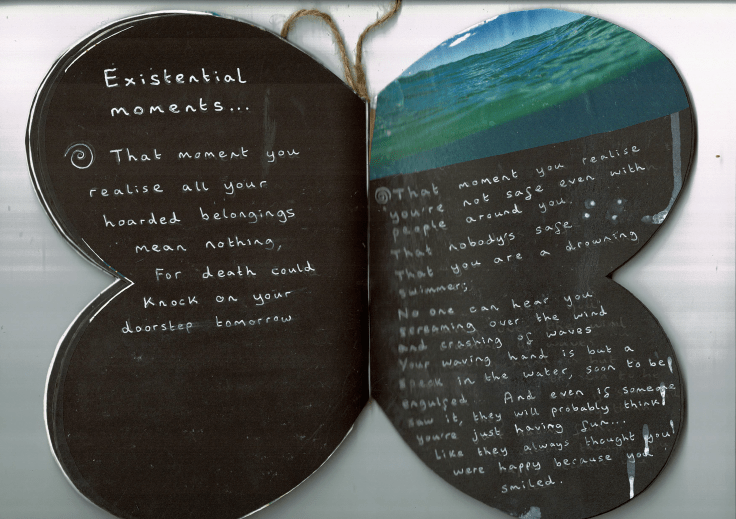 Existential
moments...
That moment you
realise all your
hoarded belongings
mean nothing,
For death could
knock on your
doorstep tomorrow
That moment you realise
you're not safe even with
people around you.
That nobody's safe
That you are a drowning
swimmer;
No one can hear you
screaming over the wind
and crashing of waves
Your waving hand is but a
speck in the water, soon to be
engulfed. And even if someone
saw it, they will probably think
you're just having fun...
Like they always thought you
were happy because you
smiled.